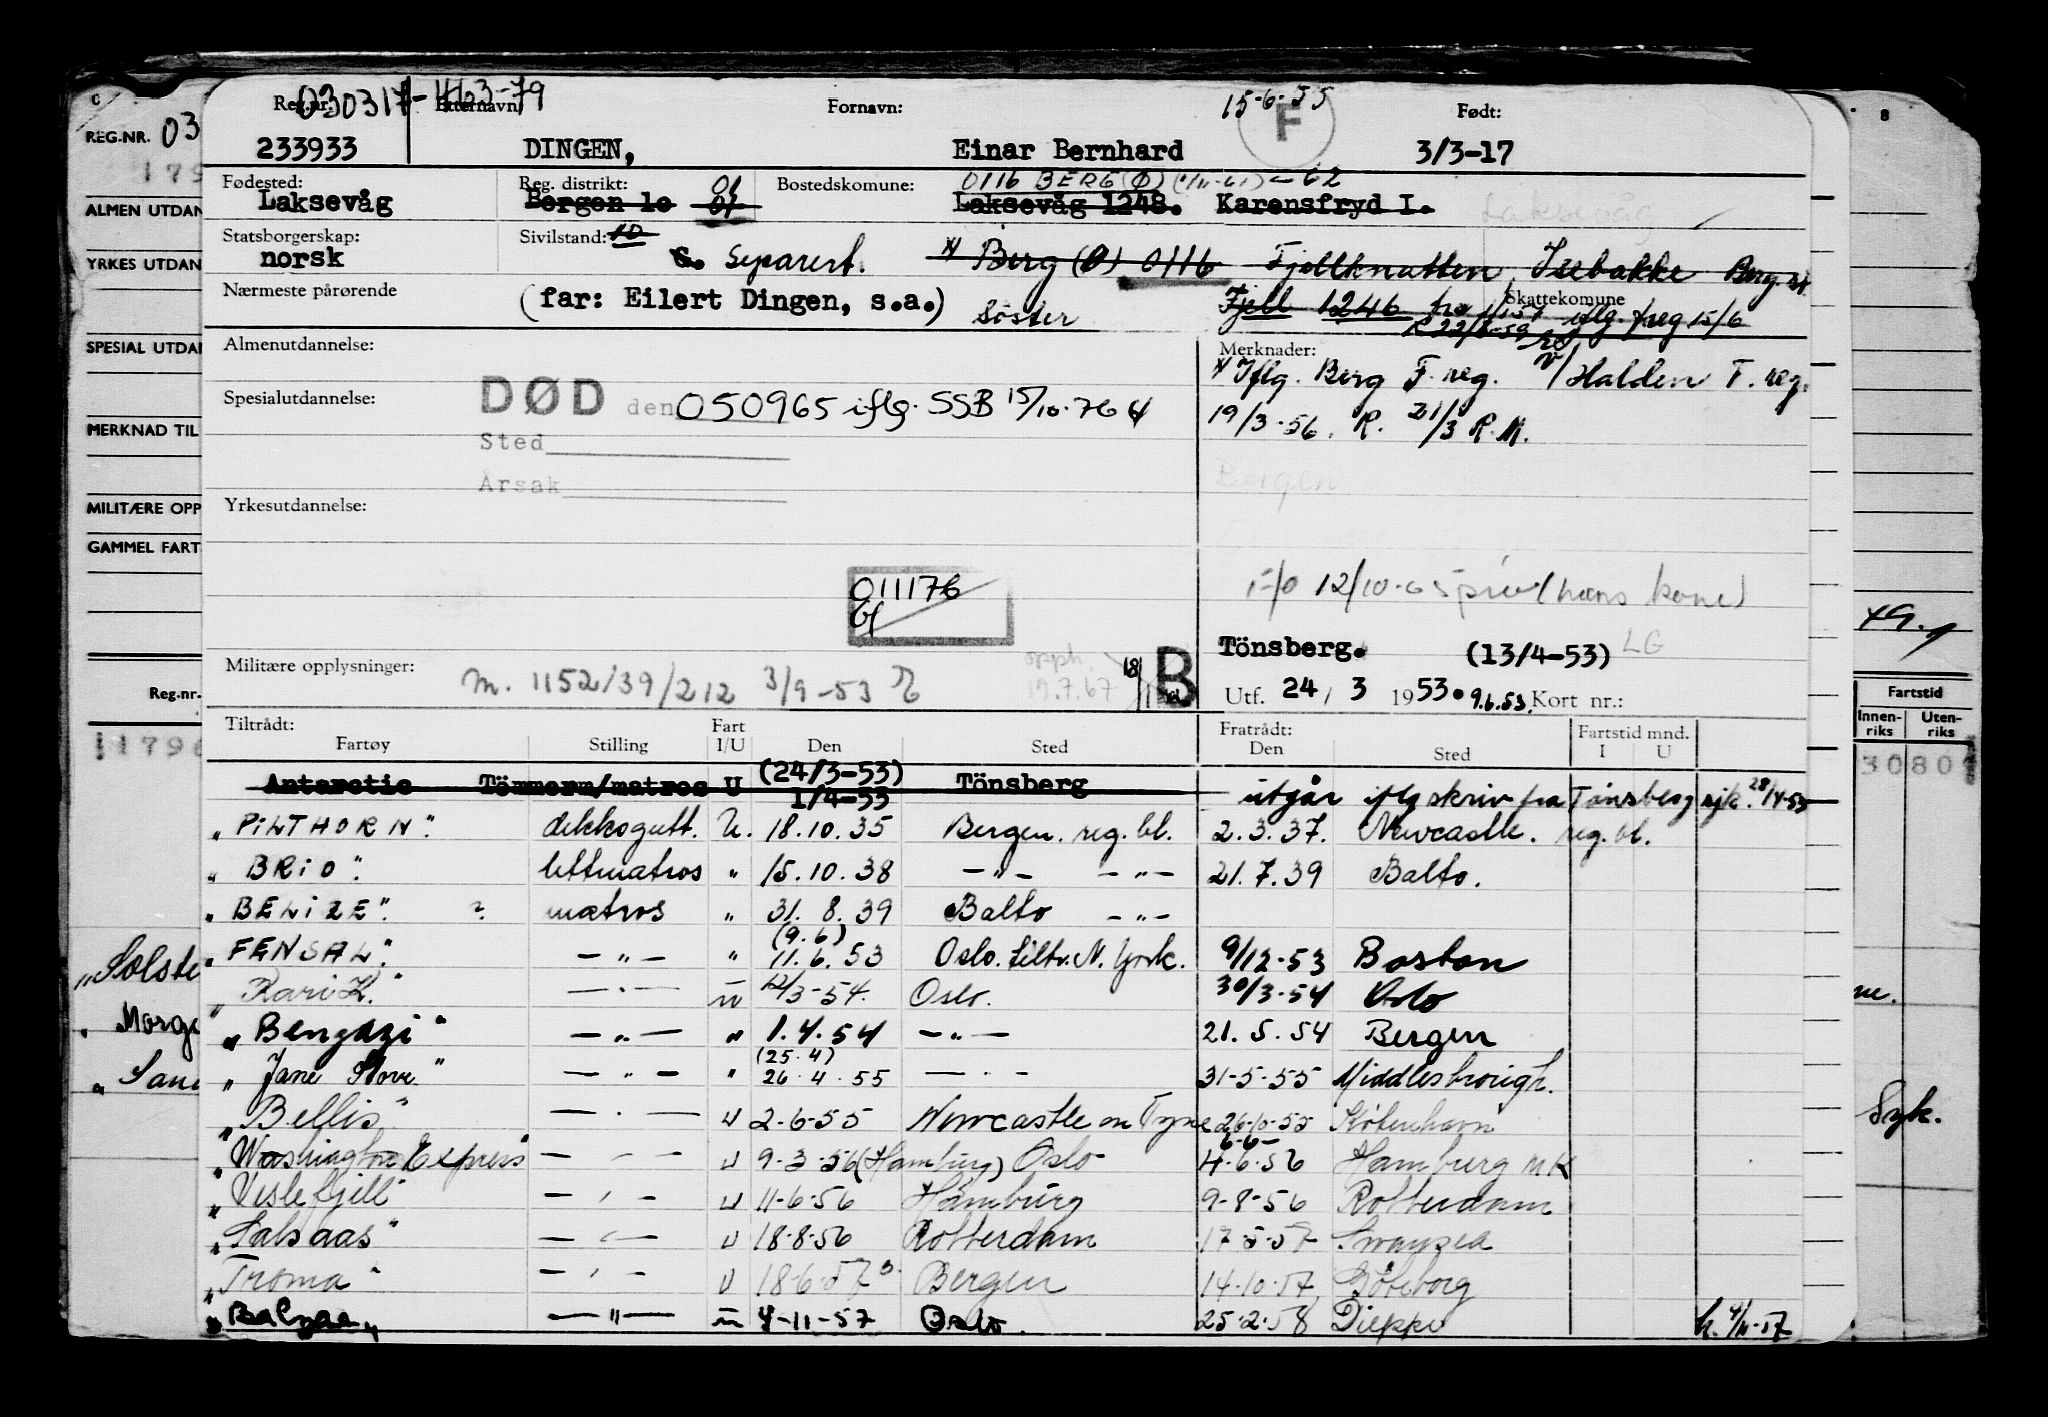 030317-46379 15-6-55
Reg.nr. Etternavn: Fornavn: F Født:
233933 DINGEN, Einar Bernhard 3/3-17
Fødested: Reg. distrikt: 01 Bostedskomune: 0116 BERG (Ø) (1/11-61) - 62
Laksevåg Bergen 10 01 Laksevåg 1248. Karensfryd I. Laksevåg
Statsborgerskap: Sivilstand: 10
norsk S. Separert. x/ Berg (Ø) 0116 Fjellknatten, Isebakke Berg st
Nærmeste pårørende (far: Eilert Dingen, s.a.) Söster Fjell 1246 fra Skattekomune
iflg. freg 15/6
R 22/8-59
Almenutdannelse: Merknader:
x/ Iflg. Berg F. reg. v/Halden T. reg.
Spesialutdannelse: DØD den 050965 iflg. SSB 15/10-76
19/3-56. R. 21/3 R.M.
Sted
Årsak
Bergen
Yrkesutdannelse:
011176
12/10-65 priv (hans kone)
Tönsberg. (13/4-53) LG
Militære opplysninger: m. 1152/39/212 3/9-53 opph. 19.7.67 18/11 B
Utf. 24 / 3 1953. 9.6.53. Kort nr.:
Tiltrådt: Fart Fratrådt: Fartstid mnd.
Fartøy Stilling I/U Den Sted Den Sted I U
Antarctic Tömmerm/matros U (24/3-53) 1/4-53 Tönsberg utgår iflg skriv fra Tönsberg sjk. 28/4-53
"PILTHORN". dekksgutt. U. 18.10.35 Bergen. reg. bl. 2.3.37. Newcastle. reg. bl.
"BRIO". lettmatros " 15.10.38 -"- -"- 21.7.39 Balto.
"BELIZE". ? matros " 31.8.39 Balto -"-
"FENSAL". -"- " (9.6) 11.6.53 Oslo. tiltr. N. York. 9/12-53 Boston
"Kari K." -"- U 12/3-54. Oslo. 30/3-54 Oslo
"Bengazi" -"- " 1.4.54 -"- 21.5.54 Bergen
"Jane Stove" -"- " (25.4) 26.4.55 -"- 31-5-55 Middlesbrough.
"Bellis" -"- U 2-6-55 Newcastle on Tyne 26-10-55 København
"Washington Express" -"- U 9-3-56 (Hamburg) Oslo 6-6- 4-6-56 Hamburg MK
"Veslefjell" -"- U 11-6-56 Hamburg 9-8-56 Rotterdam
"Salsaas" -"- U 18-8-56 Rotterdam 17-5-57 Swansea
"Troma" -"- U 18-6-57 Bergen 14-10-57 Göteborg
-"- U 4-11-57 Oslo. 25-2-58 Dieppe h. 4/11-57
C
REG.NR. 03
179
ALMEN UTDAN
YRKES UTDAN
SPESIAL UTDAN
MERKNAD TIL
MILITÆRE OPP
GAMMEL FART
Reg.nr.
11796
"Solste
"Morge
"Sand
8
Fartstid
Innen-riks Uten-riks
3080
Syk.